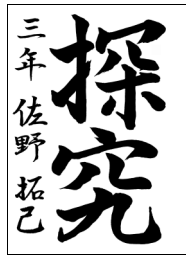 探究
三年 佐野 拓己